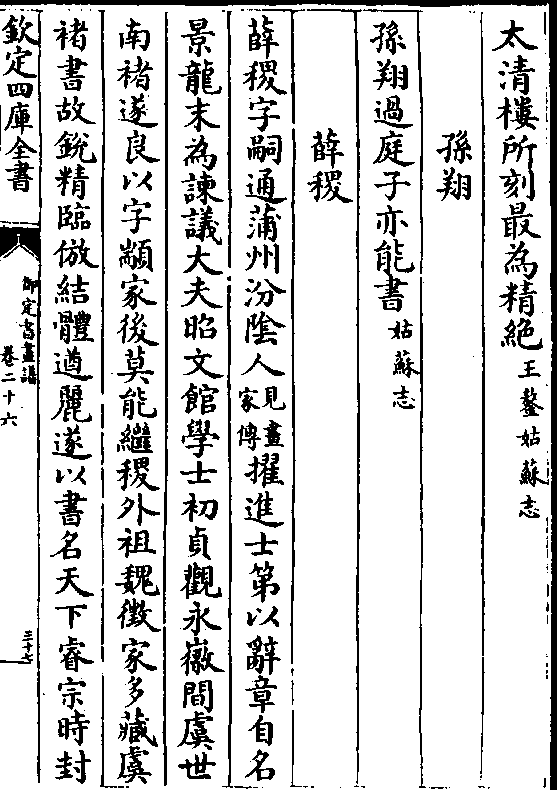 太清樓所刻最為精絶王鏊姑蘇志
孫翔
孫翔過庭子亦能書姑蘇志
薛稷
薛稷字嗣通蒲州汾陰人見畫家傳擢進士第以辭章自名
景龍末為諫議大夫昭文館學士初貞觀永徽間虞世
南褚遂良以字顓家後莫能繼稷外祖魏徵家多藏虞
褚書故鋭精臨倣結體遒麗遂以書名天下睿宗時封
欽定四庫全書
御定書畫譜
卷二十六